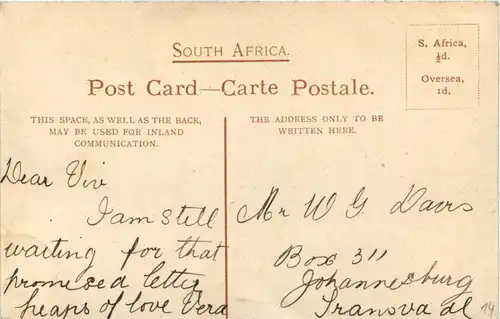 SOUTH AFRICA.
Post Card—Carte Postale.
S. Africa,
½d.
Oversea,
1d.
THIS SPACE, AS WELL AS THE BACK,
MAY BE USED FOR INLAND
COMMUNICATION.
THE ADDRESS ONLY TO BE
WRITTEN HERE.
Dear Vivi
I am still
waiting for that
promised letter
heaps of love Vera
Mr W G Davis
Box 311
Johannesburg
Transvaal
14